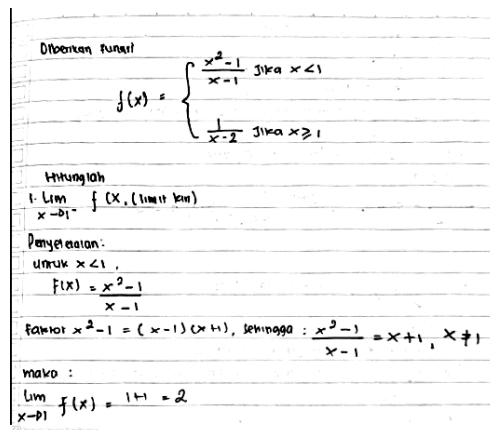 Diberikan fungsi
f(x) = { x²-1 / x-1 Jika x<1
1 / x-2 Jika x≥1
Hitunglah
1. Lim x→1⁻ f(x, (limit kiri)
Penyelesaian:
untuk x<1,
F(x) = x²-1 / x-1
Faktor x²-1 = (x-1)(x+1), sehingga : x²-1 / x-1 = x+1, x≠1
maka :
Lim x→1 f(x) = 1+1 = 2